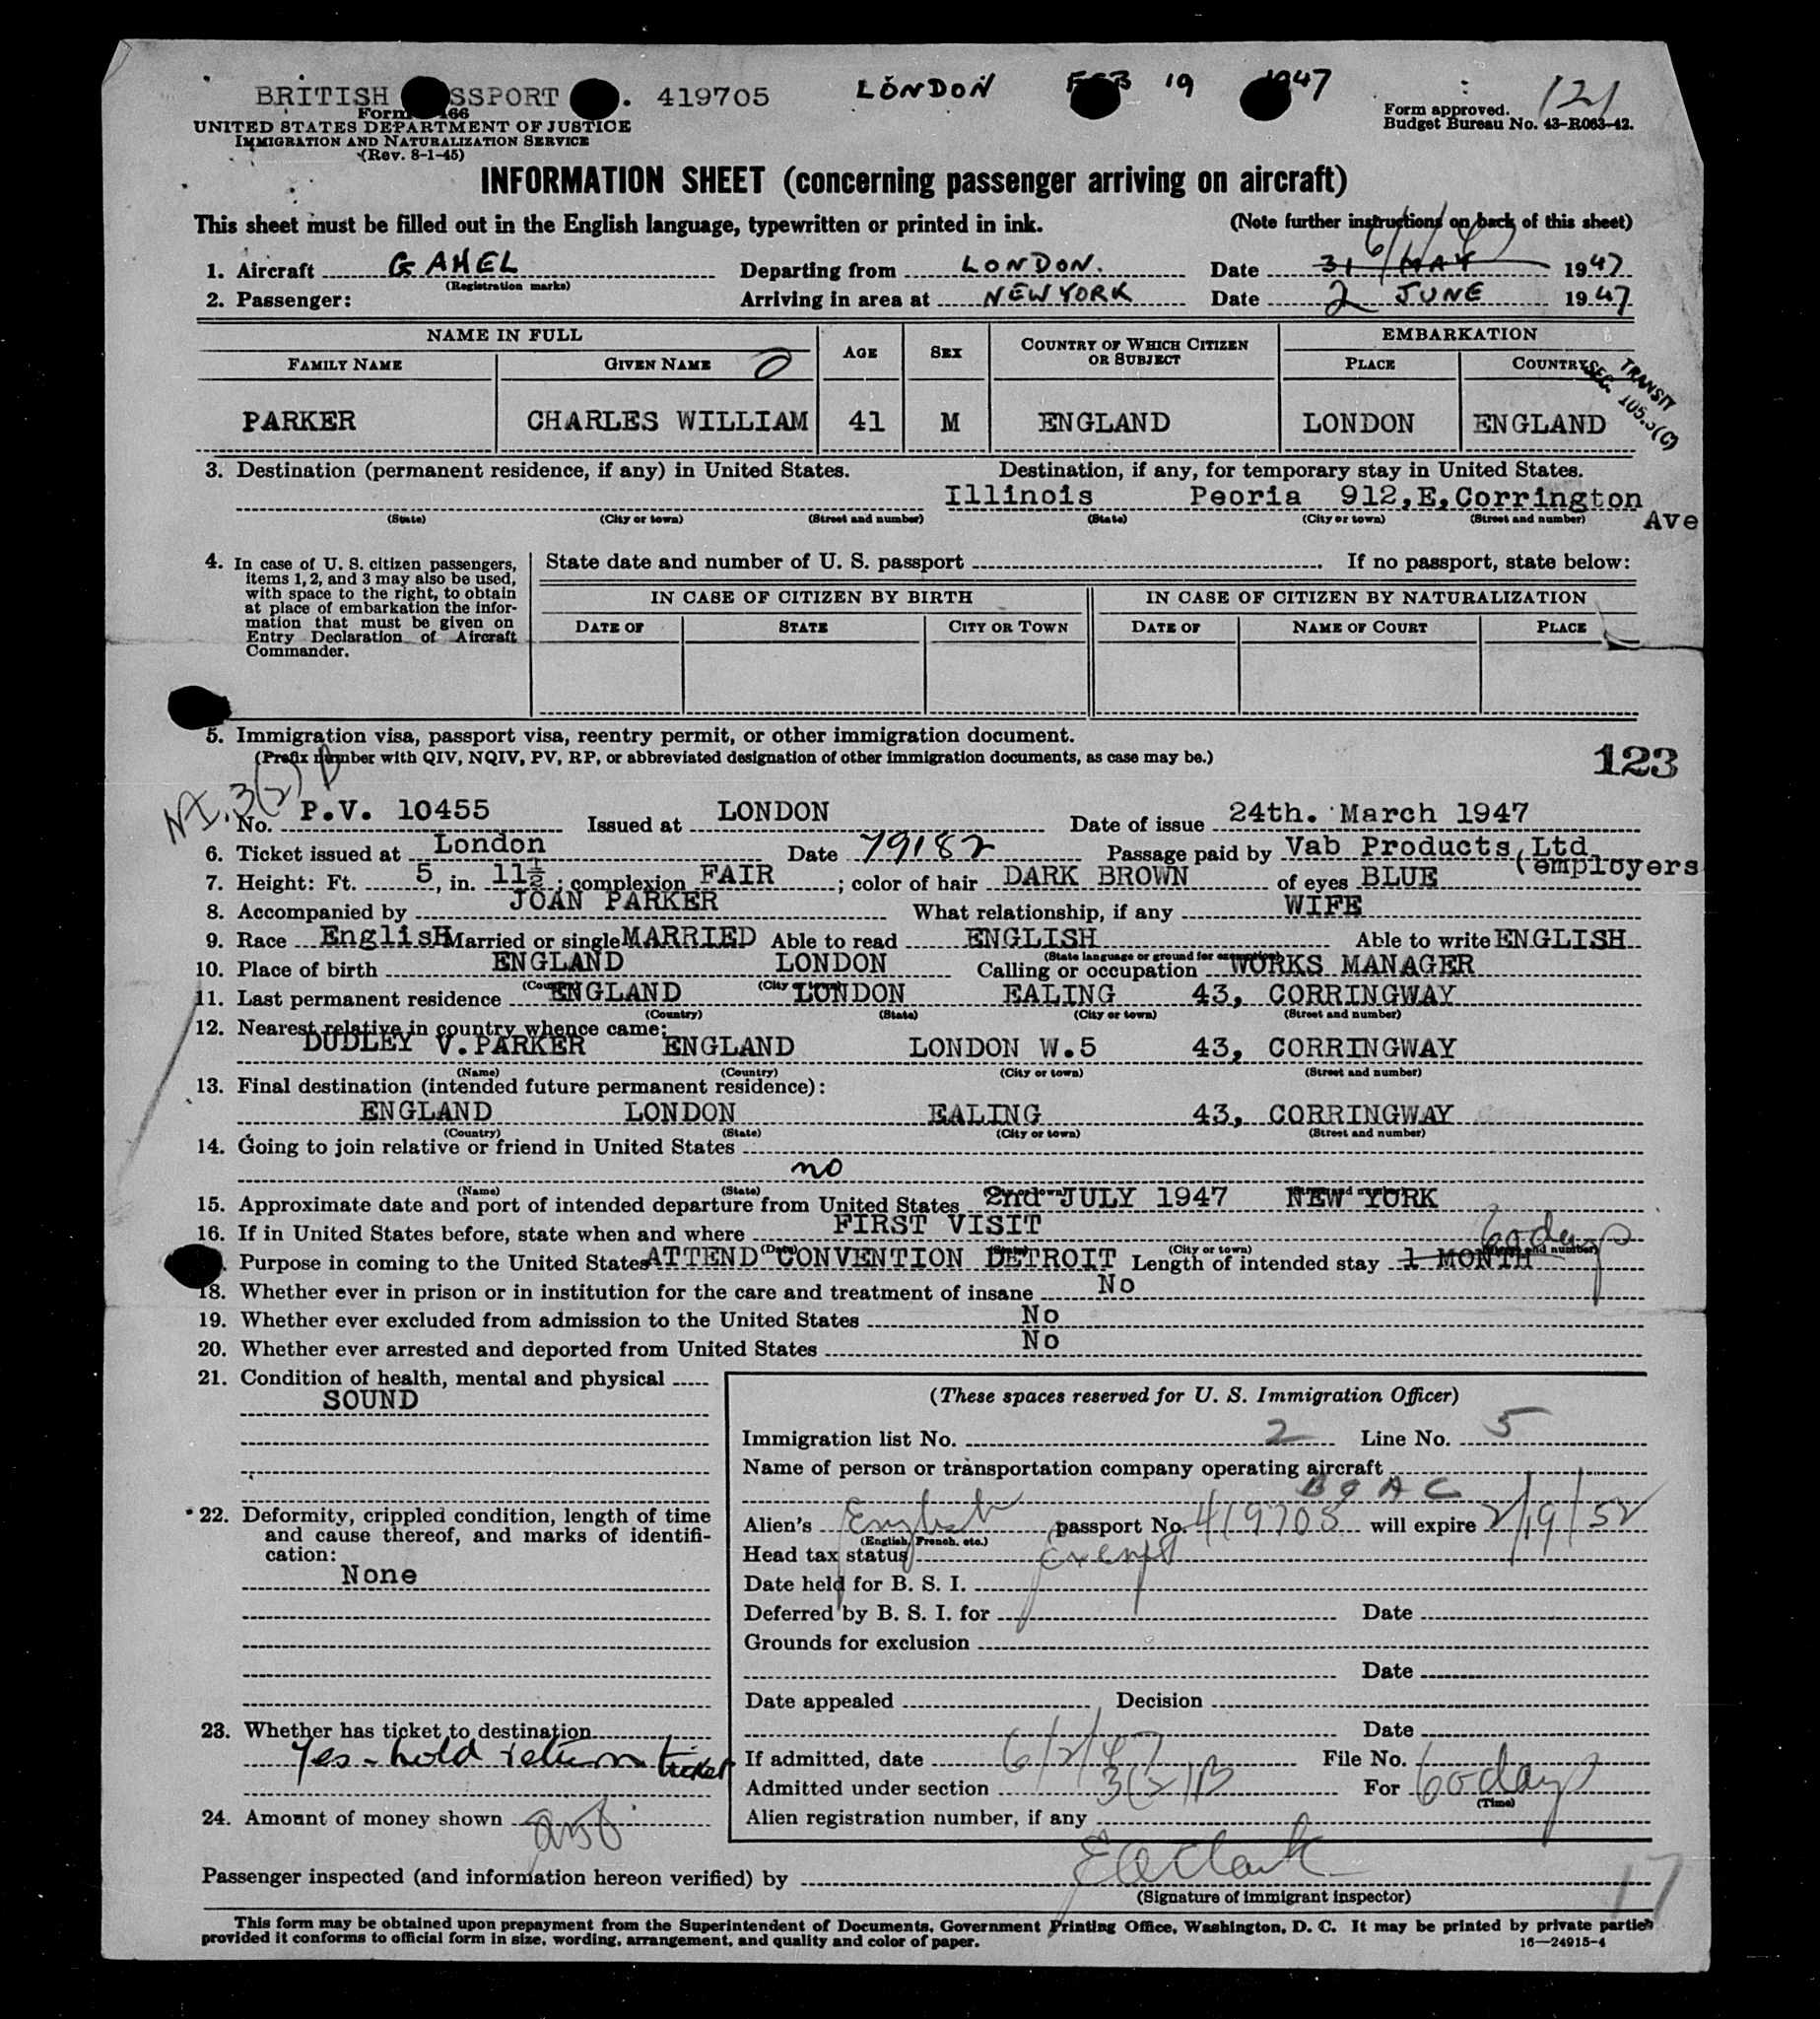 BRITISH SSPORT . 419705 LONDON FEB 19 1947
Form 66
UNITED STATES DEPARTMENT OF JUSTICE
IMMIGRATION AND NATURALIZATION SERVICE
(Rev. 8-1-45)
Form approved. 121
Budget Bureau No. 43-R063-42.
INFORMATION SHEET (concerning passenger arriving on aircraft)
This sheet must be filled out in the English language, typewritten or printed in ink. (Note further instructions on back of this sheet)
6/1/47
1. Aircraft G AHEL Departing from LONDON. Date 31 MAY 1947
(Registration marks)
2. Passenger: Arriving in area at NEW YORK Date 2 JUNE 1947
NAME IN FULL AGE SEX COUNTRY OF WHICH CITIZEN OR SUBJECT EMBARKATION
FAMILY NAME GIVEN NAME PLACE COUNTRY
TRANSIT
SEC. 105.3(C)
PARKER CHARLES WILLIAM 41 M ENGLAND LONDON ENGLAND
3. Destination (permanent residence, if any) in United States. Destination, if any, for temporary stay in United States.
Illinois Peoria 912,E,Corrington Ave
(State) (City or town) (Street and number) (State) (City or town) (Street and number)
4. In case of U. S. citizen passengers,
items 1, 2, and 3 may also be used,
with space to the right, to obtain
at place of embarkation the infor-
mation that must be given on
Entry Declaration of Aircraft
Commander.
State date and number of U. S. passport . If no passport, state below:
IN CASE OF CITIZEN BY BIRTH IN CASE OF CITIZEN BY NATURALIZATION
DATE OF STATE CITY OR TOWN DATE OF NAME OF COURT PLACE
5. Immigration visa, passport visa, reentry permit, or other immigration document.
(Prefix number with QIV, NQIV, PV, RP, or abbreviated designation of other immigration documents, as case may be.)
123
NI. 3(2) B
No. P.V. 10455 Issued at LONDON Date of issue 24th. March 1947
6. Ticket issued at London Date 79182 Passage paid by Vab Products Ltd
(employers
7. Height: Ft. 5, in. 11½; complexion FAIR; color of hair DARK BROWN of eyes BLUE
8. Accompanied by JOAN PARKER What relationship, if any WIFE
9. Race EnglisH Married or single MARRIED Able to read ENGLISH Able to write ENGLISH
(State language or ground for exemption)
10. Place of birth ENGLAND LONDON Calling or occupation WORKS MANAGER
(Country) (City or town)
11. Last permanent residence ENGLAND LONDON EALING 43, CORRINGWAY
(Country) (State) (City or town) (Street and number)
12. Nearest relative in country whence came:
DUDLEY V.PARKER ENGLAND LONDON W.5 43, CORRINGWAY
(Name) (Country) (City or town) (Street and number)
13. Final destination (intended future permanent residence):
ENGLAND LONDON EALING 43, CORRINGWAY
(Country) (State) (City or town) (Street and number)
14. Going to join relative or friend in United States
no
(Name) (State) (City or town) (Street and number)
15. Approximate date and port of intended departure from United States 2nd JULY 1947 NEW YORK
16. If in United States before, state when and where FIRST VISIT
(Date) (State) (City or town) (Street and number)
60 days
Purpose in coming to the United States ATTEND CONVENTION DETROIT Length of intended stay 1 MONTH
18. Whether ever in prison or in institution for the care and treatment of insane No
19. Whether ever excluded from admission to the United States No
20. Whether ever arrested and deported from United States No
21. Condition of health, mental and physical
SOUND
22. Deformity, crippled condition, length of time
and cause thereof, and marks of identifi-
cation:
None
23. Whether has ticket to destination
Yes - hold return ticket
24. Amount of money shown
(These spaces reserved for U. S. Immigration Officer)
Immigration list No. 2 Line No. 5
Name of person or transportation company operating aircraft
B O A C
Alien's English passport No. 419705 will expire 2/19/52
(English, French, etc.)
Head tax status exempt
Date held for B. S. I.
Deferred by B. S. I. for Date
Grounds for exclusion
Date
Date appealed Decision
Date
If admitted, date 6/2/47 File No.
Admitted under section 3(2)B For 60 days
(Time)
Alien registration number, if any
Passenger inspected (and information hereon verified) by E A Clark
(Signature of immigrant inspector)
17
This form may be obtained upon prepayment from the Superintendent of Documents, Government Printing Office, Washington, D. C. It may be printed by private parties
provided it conforms to official form in size, wording, arrangement, and quality and color of paper. 16—24915-4